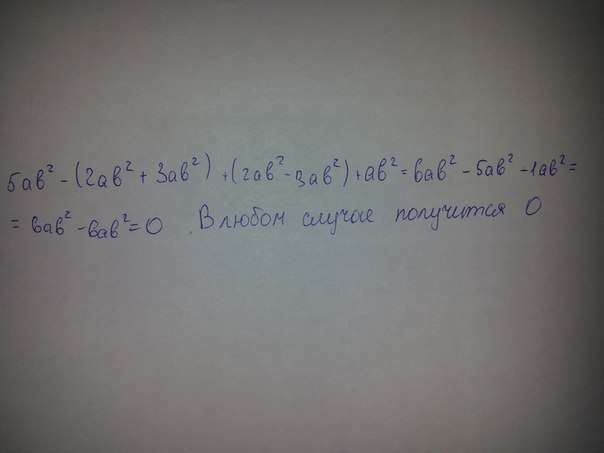 5ab² - (2ab² + 3ab²) + (2ab² - 3ab²) + ab² = 6ab² - 5ab² - 1ab² =
= 6ab² - 6ab² = 0 . В любом случае получится 0